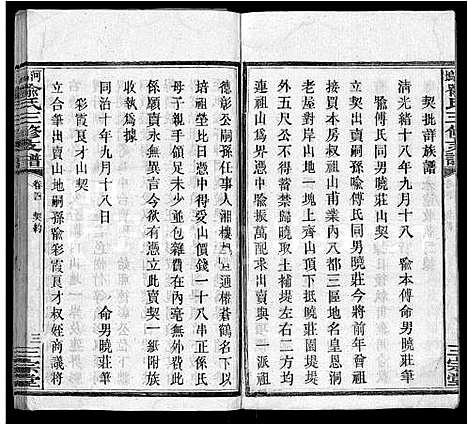 契批詳族譜
清光緒十八年九月十八 喻本傳命男曉莊筆
喻傅氏同男曉莊山契
立契賣山嗣孫喻傅氏同男曉莊今將前年曾祖
接買本房叔祖山甫業內八都三區地名皇恩洞
老屋對岸山地一塊上齊山頂下抵曉莊園堤
外五尺爲界不得侵佔禁步土補堤左右二方均
連祖山爲界憑中喻振萬配求出賣與嗣
德彰公嗣孫任事人湘樓通權蒼鶴名下
培祖塋比日憑中得受山價錢一十八串正係氏
母子親手領足未少並無雜費在內毫無壓逼等
係願賣永無異言今欲有憑立此賣契一紙附族
收執爲據
同治十年九月十八日 命男曉莊筆
彩霞良才山契
立合筆出賣山地嗣孫喻彩霞良才叔姪商議將
喻氏三修支譜
卷 契約
三
三崇堂
河
喻氏三修支譜
三崇堂